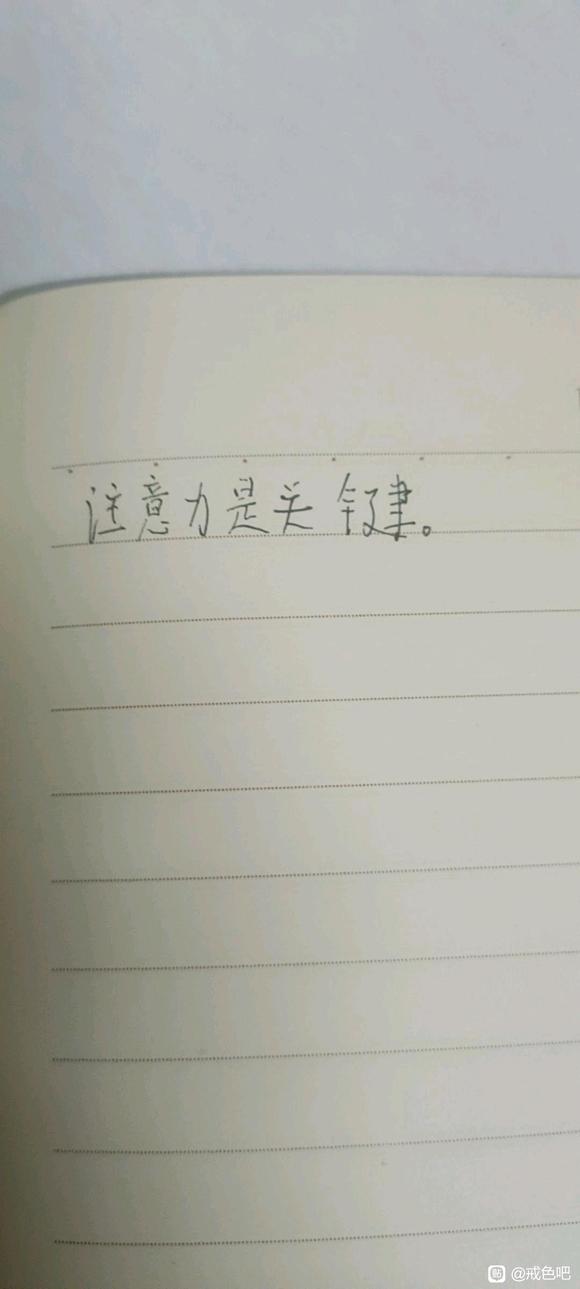 注意力是关键。
贴 @戒色吧